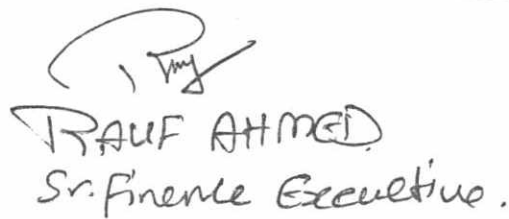 RAUF AHMED.
Sr. Finence Executive.